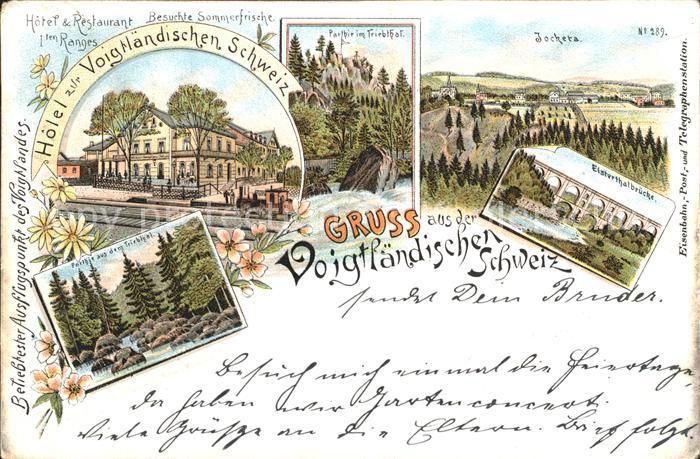 Hôtel & Restaurant
1ten Ranges
Besuchte Sommerfrische.
Hôtel zur Voigtländischen Schweiz
Parthie im Triebthal.
Jocketa.
No 289.
Eisenbahn,- Post,- und Telegraphenstation.
Elsterthalbrücke.
Beliebtester Ausflugspunkt des Voigtlandes.
Parthie aus dem Triebthal.
GRUSS aus der
Voigtländischen
Schweiz
sendet Dein Bruder.
Besuch mich einmal die Feiertage
da haben wir Gartenconcert.
Viele Grüße an die Eltern. Brief folgt